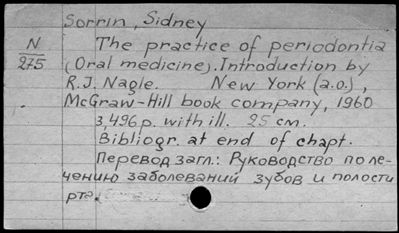 Sorrin, Sidney
N
275
The practice of periodontia
(Oral medicine). Introduction by
R.J. Nagle. New York (a.o.),
McGraw-Hill book company, 1960
3,496 p. with ill. 25 cm.
Bibliogr. at end of chapt.
Перевод загл.: Руководство по ле-
чению заболеваний зубов и полости
рта.